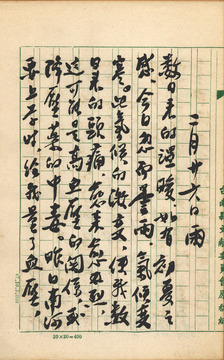 二月廿六日雨
数日来的温暖如有初夏之
感，今日忽而墨雨，气候变
寒。此气候的激变，使我数
日来的头痛，愈来愈烈，
这可能是高血压的关系，或
降压药的中毒。昨日南河
要上学时，给我量了血压，
20×20=400